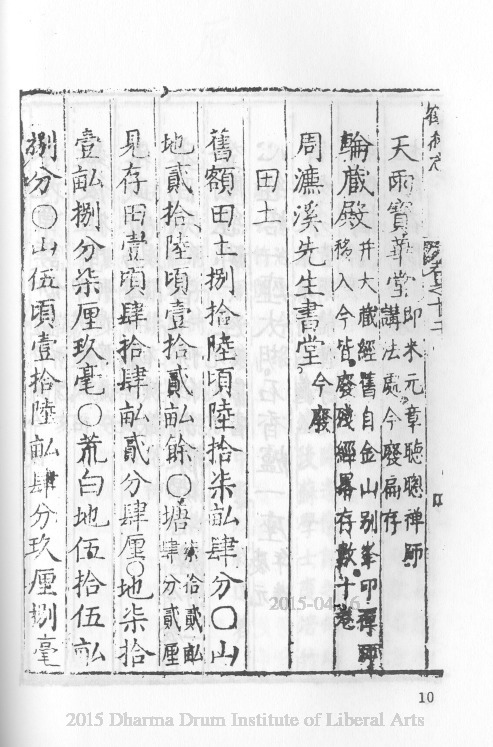 天雨寶華堂即米元章聽聰禪師講法處今廢扁存
輪藏殿并大藏經舊自金山別峯印禪師移入今皆廢殘經畧存數十卷
周濂溪先生書堂今廢
田土
舊額田土捌拾陸頃陸拾柒畝肆分〇山
地貳拾陸頃壹拾貳畝餘〇塘柒拾貳畝肆分貳厘
見存田壹頃肆拾肆畝貳分肆厘〇地柒拾
壹畝捌分柒厘玖毫〇荒白地伍拾伍畝
捌分〇山伍頃壹拾陸畝肆分玖厘捌毫
四
2015-04-16
10
2015 Dharma Drum Institute of Liberal Arts